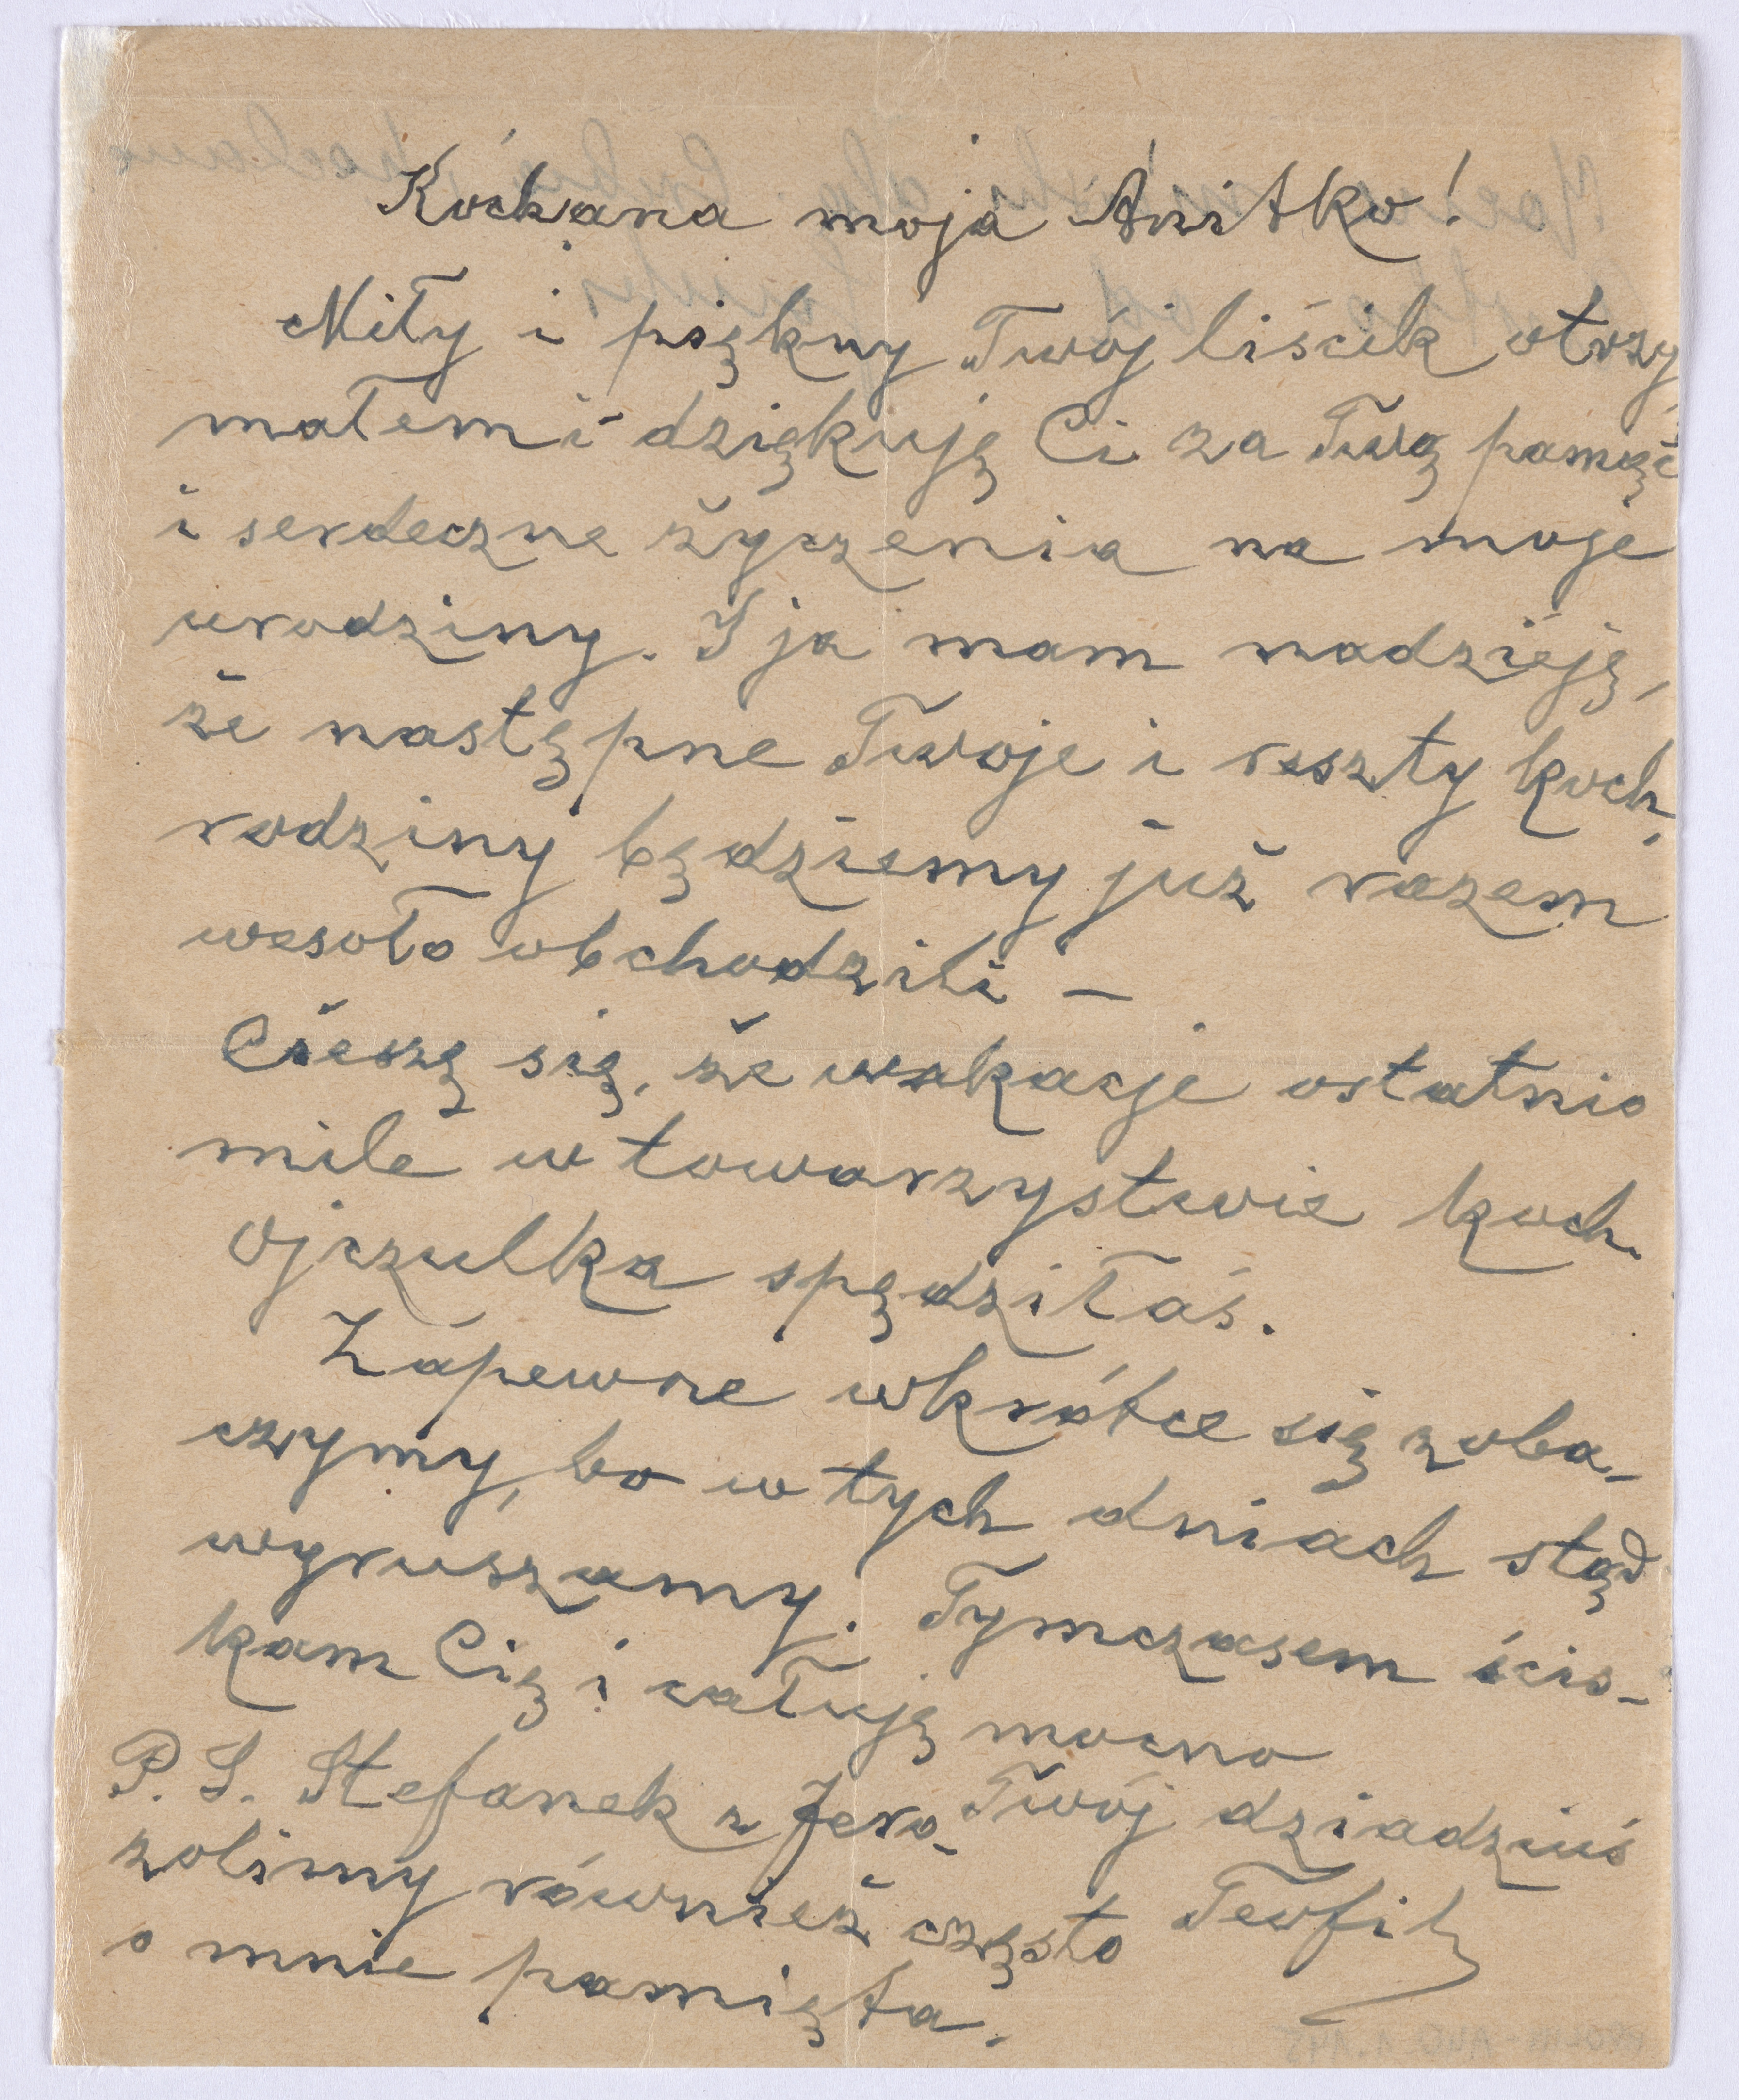 Kochana moja Anitko!
Miły i piękny Twój liścik otrzy
małem i dziękuję Ci za Twą pamięć
i serdeczne życzenia na moje
urodziny. I ja mam nadzieję,
że następne Twoje i reszty koch.
rodziny będziemy już razem
wesoło obchodzili –
Cieszę się, że wakacje ostatnio
mile w towarzystwie koch.
Ojczulka spędziłaś.
Zapewne wkrótce się zoba-
czymy, bo w tych dniach stąd
wyruszamy. Tymczasem ścis-
kam Cię i całuję mocno
Twój dziadziuś
Teofil
P. S. Stefanek z Jero-
zolimy również często
o mnie pamięta.